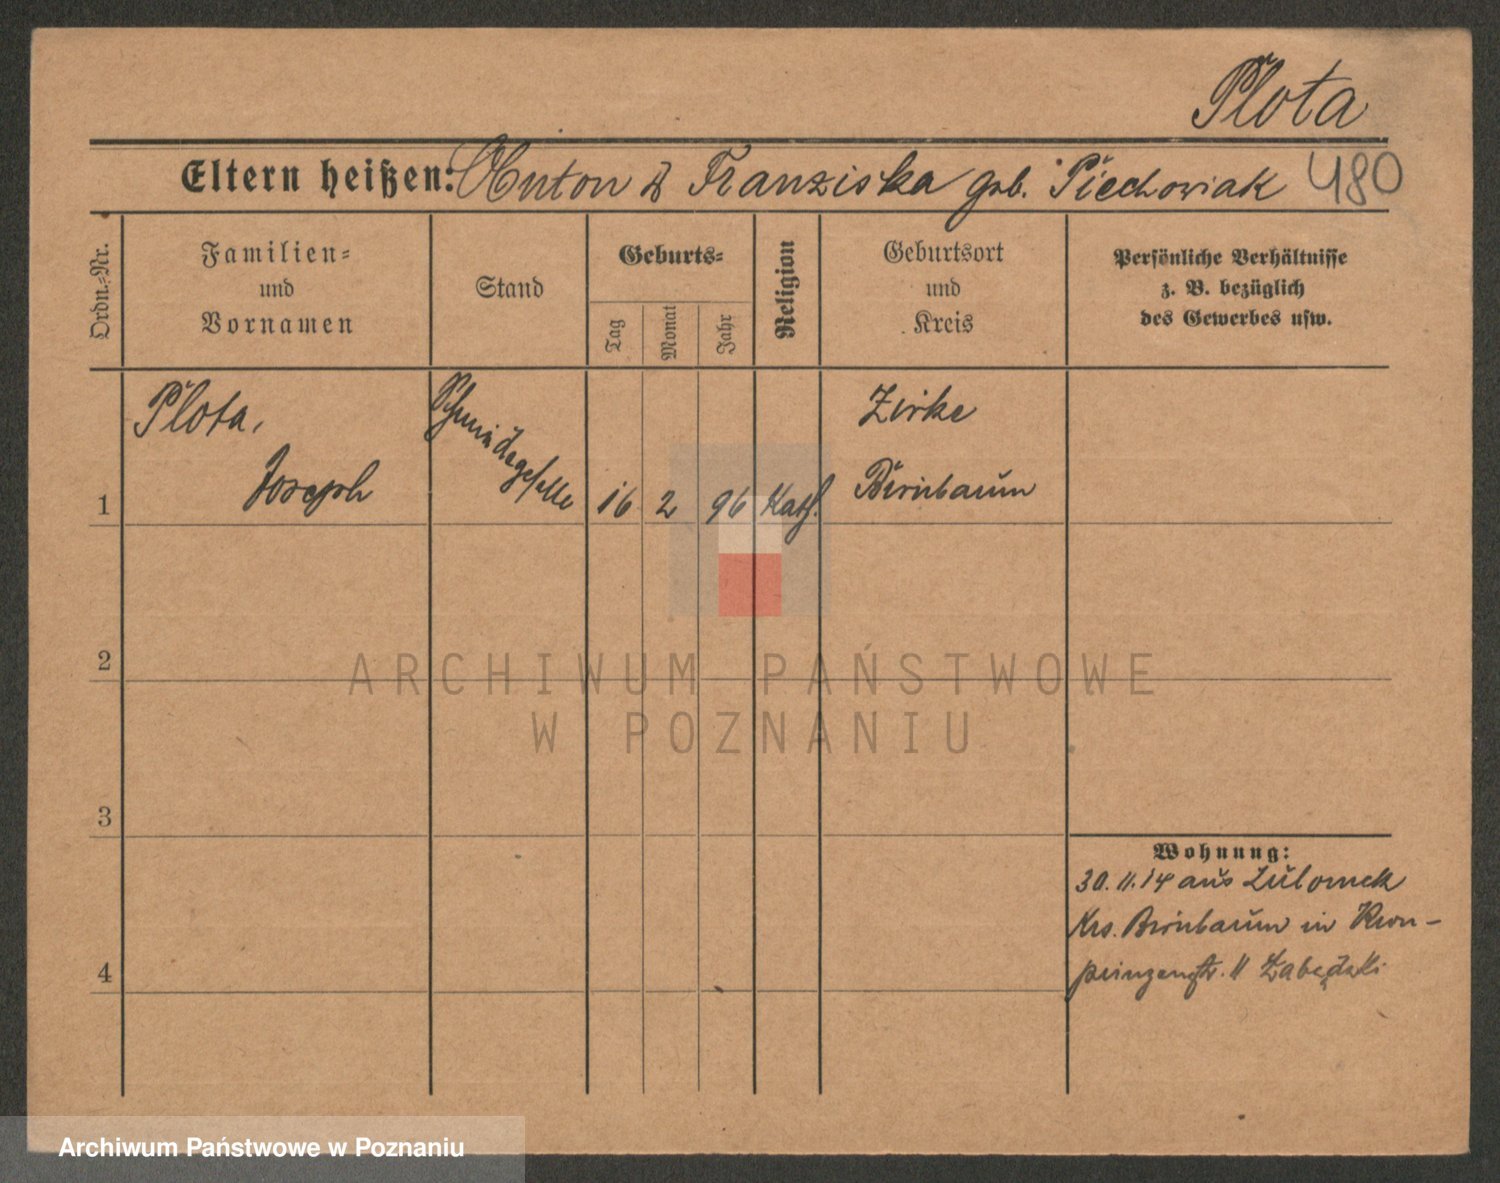 Plota
Eltern heißen: Anton & Franziska geb. Piechowiak 480
Ordn.-Nr.
Familien-
und
Vornamen
Stand
Geburts-
Tag
Monat
Jahr
Religion
Geburtsort
und
Kreis
Persönliche Verhältnisse
z. B. bezüglich
des Gewerbes usw.
1
Plota,
Joseph
Schmiedegeselle
16
2
96
Kath.
Zirke
Birnbaum
2
ARCHIWUM PAŃSTWOWE
W POZNANIU
3
Wohnung:
30.11.14 aus
Krs. Birnbaum in Kron-
prinzenstr. 11
4
Archiwum Państwowe w Poznaniu